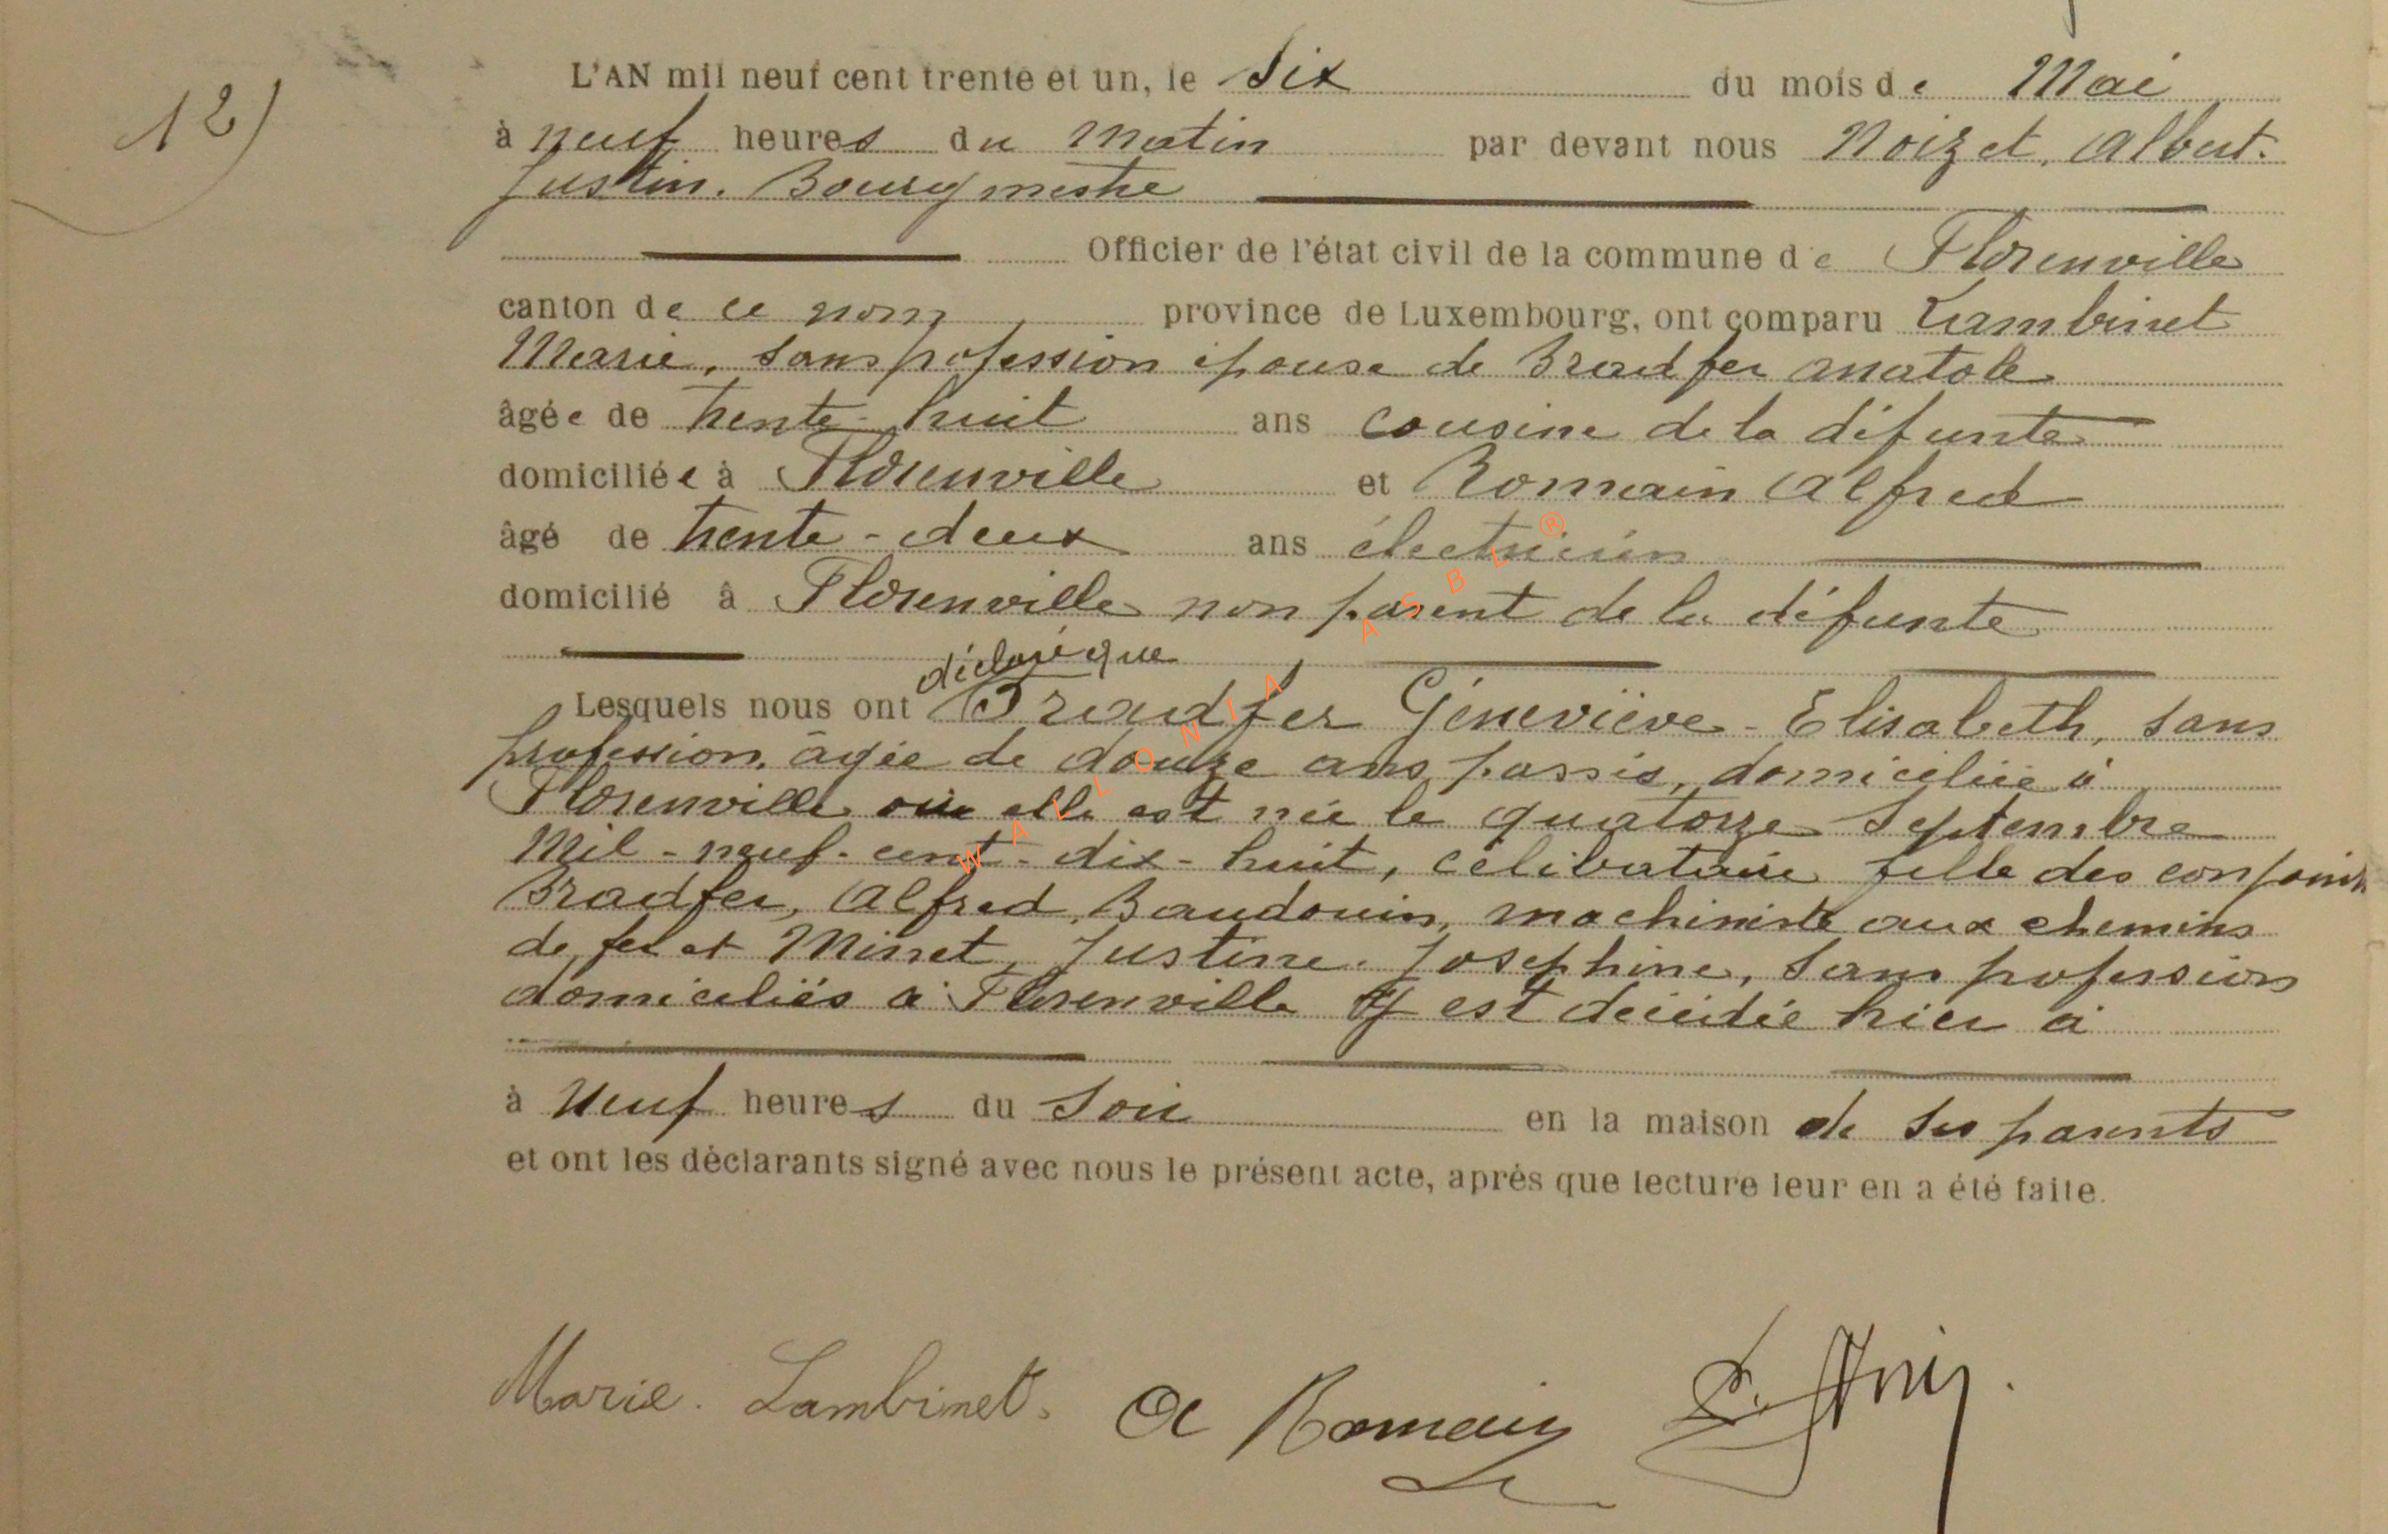 12)
L'AN mil neuf cent trente et un, le Six du mois de Mai
à neuf heures du matin par devant nous Noizet, Albert.
Justin. Bourgmestre
Officier de l'état civil de la commune de Florenville
canton de ce nom province de Luxembourg, ont comparu Lambinet
Marie, sans profession épouse de Bradfer anatole
âgée de trente-huit ans cousine de la défunte
domiciliée à Florenville et Romain Alfred
âgé de trente-deux ans électricien
domicilié à Florenville non parent de la défunte
déclaré que
Lesquels nous ont Bradfer Géneviève-Elisabeth, sans
profession, âgée de douze ans passés, domiciliée à
Florenville où elle est née le quatorze Septembre
Mil-neuf-cent-dix-huit, célibataire fille des conjoints
Bradfer, Alfred, Baudouin, machiniste aux chemins
de fer et Minet, Justine. Josephine, sans profession
domiciliés à Florenville y est décédée hier à
à Neuf heures du Soir en la maison de ses parents
et ont les déclarants signé avec nous le présent acte, après que lecture leur en a été faite.
Marie. Lambinet. A Romain
WALLONIA ASBL ®